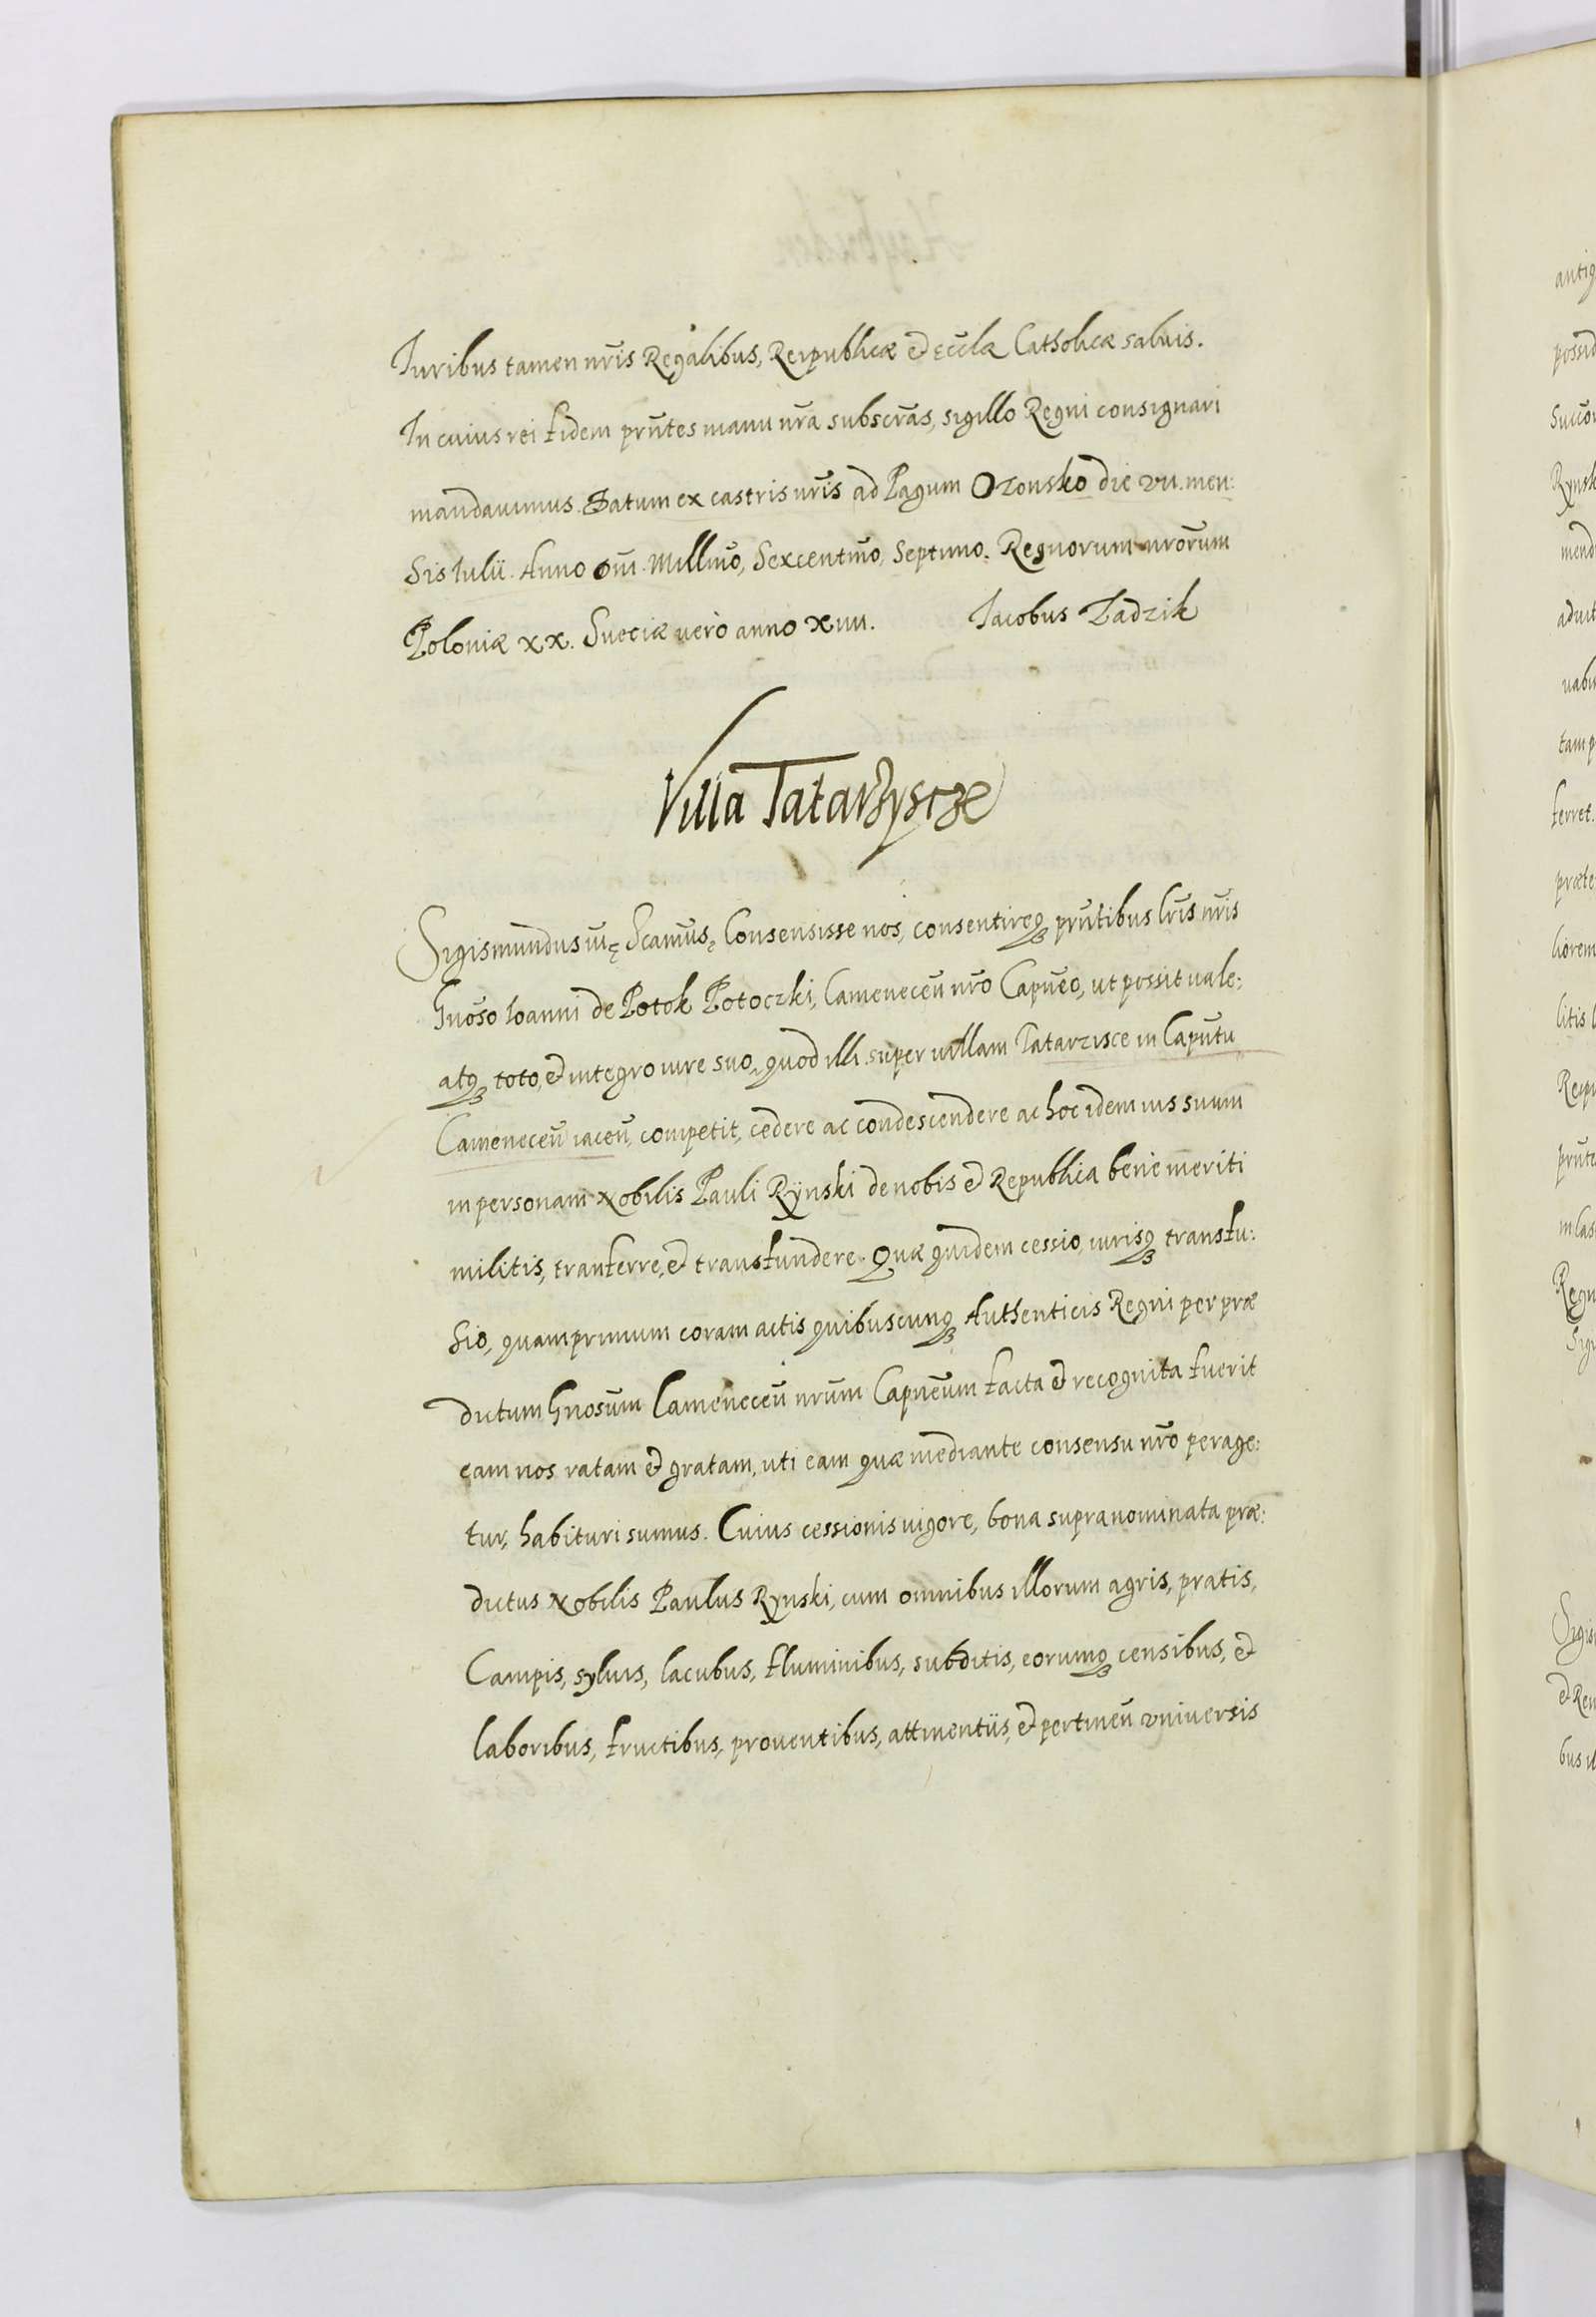 Iuribus tamen nr̃is Regalibus, Reipublicæ et Eccl̃æ Catholicæ saluis.
In cuius rei fidem prñtes manu nr̃a subscr̃as, sigillo Regni consignari
mandauimus. Datum ex castris nr̃is ad Pagum Oronsko die vii. men:
sis Iulii. Anno Dñi. Millmõ, Sexcentmõ, Septimo. Regnorum nrõrum
Poloniæ xx. Sueciæ uerò anno xiiii. Iacobus Zadzik
Villa Tatarzyscze
Sigismundus iii, Scamũs, Consensisse nos, consentireq prñtibus lr̃is nr̃is
Gnõso Ioanni de Potok Potoczki, Cameneceñ nrõ Capñeo, ut possit uale:
atq toto, et integro iure suo, quod illi super uillam Tatarzisce in Capñtu
Cameneceñ iaceñ, competit, cedere ac condescendere ac hoc idem ius suum
in personam Nobilis Pauli Rÿnski de nobis et Republica bene meriti
militis, tranferre, et transfundere. Quæ quidem cessio, iurisq transfu:
sio, quamprimum coram actis quibuscunq Authenticis Regni per præ
dictum Gnosũm Cameneceñ nrũm Capnẽum facta et recognita fuerit
eam nos ratam et gratam, uti eam quæ mediante consensu nrõ perage:
tur, habituri sumus. Cuius cessionis uigore, bona supranominata præ:
dictus Nobilis Paulus Rynski, cum omnibus illorum agris, pratis,
Campis, syluis, lacubus, fluminibus, subditis, eorumq censibus, et
laboribus, fructibus, prouentibus, attinentiis, et pertineñ vniuersis